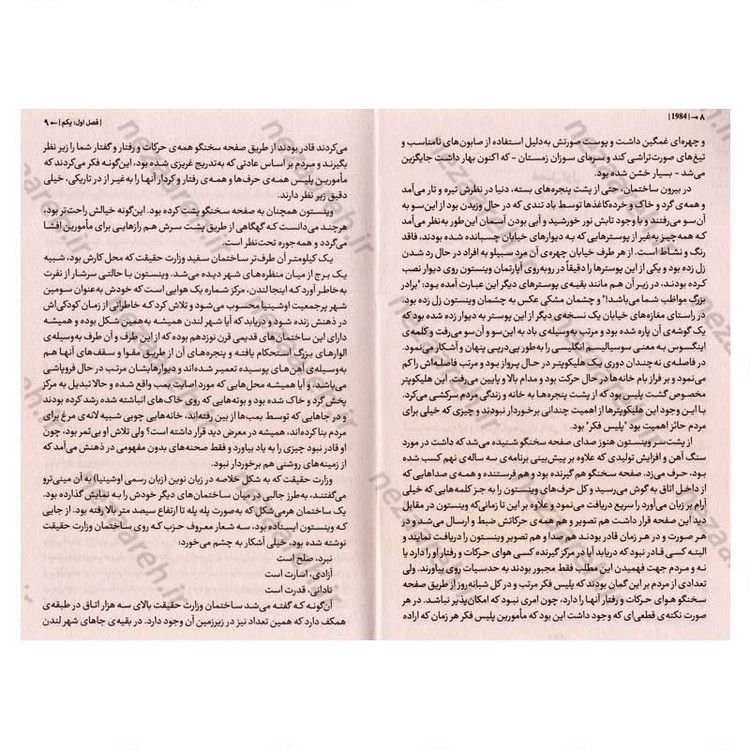 ۸ → |1984|
و چهره‌ای غمگین داشت و پوست صورتش به‌دلیل استفاده از صابون‌های نامناسب و
تیغ‌های صورت‌تراشی کند و سرمای سوزان زمستان - که اکنون بهار داشت جایگزین
می‌شد - بسیار خشن شده بود.
در بیرون ساختمان، حتی از پشت پنجره‌های بسته، دنیا در نظرش تیره و تار می‌آمد
و همه‌ی گرد و خاک و خرده‌کاغذها توسط باد تندی که در حال وزیدن بود از این‌سو به
آن‌سو می‌رفتند و با وجود تابش نور خورشید و آبی بودن آسمان این‌طور به‌نظر می‌آمد
که همه‌چیز به‌غیر از پوسترهایی که به دیوارهای خیابان چسبانده شده بودند، فاقد
رنگ و نشاط است. از هر طرف خیابان چهره‌ی آن مرد سبیلو به افراد در حال رد شدن
زل زده بود و یکی از این پوسترها را دقیقاً در روبه‌روی آپارتمان وینستون روی دیوار نصب
کرده بودند، در زیر آن هم مانند بقیه‌ی پوسترهای دیگر این عبارت آمده بود: "برادر
بزرگ مواظب شما می‌باشد!" و چشمان مشکی عکس به چشمان وینستون زل زده بود.
در راستای مغازه‌های خیابان یک نسخه‌ی دیگر از این پوستر به دیوار زده شده بود که
یک گوشه‌ی آن پاره شده بود و مرتب به‌وسیله‌ی باد به این‌سو و آن‌سو می‌رفت و کلمه‌ی
اینگسوس به معنی سوسیالیسم انگلیسی را به‌طور پی‌درپی پنهان و آشکار می‌نمود.
در فاصله‌ی نه‌چندان دوری یک هلیکوپتر در حال پرواز بود و مرتب فاصله‌اش را کم
می‌نمود و بر فراز بام خانه‌ها در حال حرکت بود و مدام بالا و پایین می‌رفت. این هلیکوپتر
مخصوص گشت پلیس بود که از پشت پنجره‌ها به خانه و زندگی مردم سرکشی می‌کرد.
با این وجود این هلیکوپترها از اهمیت چندانی برخوردار نبودند و چیزی که خیلی برای
مردم حائز اهمیت بود "پلیس فکر" بود.
از پشت سر وینستون هنوز صدای صفحه سخنگو شنیده می‌شد که داشت در مورد
سنگ آهن و افزایش تولیدی که علاوه بر پیش‌بینی برنامه‌ی سه ساله‌ی نهم کسب شده
بود، حرف می‌زد. صفحه سخنگو هم گیرنده بود و هم فرستنده و همه‌ی صداهایی که
از داخل اتاق به گوش می‌رسید و کل حرف‌های وینستون را به جز کلمه‌هایی که خیلی
آرام بر زبان می‌آورد را سریع دریافت می‌نمود و علاوه بر این تا زمانی‌که وینستون در مقابل
دید این صفحه قرار داشت هم تصویر و هم همه‌ی حرکاتش ضبط و ارسال می‌شد و در
هر صورت و در هر زمان قادر بودند هم صدا و هم تصویر وینستون را دریافت نمایند و
البته کسی قادر نبود که دریابد آیا در مرکز گیرنده کسی هوای حرکات و رفتار او را دارد یا
نه و مردم جهت فهمیدن این مطلب فقط مجبور بودند به حدسیات روی بیاورند. ولی
تعدادی از مردم بر این گمان بودند که پلیس فکر مرتب و در کل شبانه‌روز از طریق صفحه
سخنگو هوای حرکات و رفتار آنها را دارد، چون امری نبود که امکان‌پذیر نباشد. در هر
صورت نکته‌ی قطعی‌ای که وجود داشت این بود که مأمورین پلیس فکر هر زمان که اراده
|فصل اول: یکم| ← ۹
می‌کردند قادر بودند از طریق صفحه سخنگو همه‌ی حرکات و رفتار و گفتار شما را زیر نظر
بگیرند و مردم بر اساس عادتی که به‌تدریج غریزی شده بود، این‌گونه فکر می‌کردند که
مأمورین پلیس همه‌ی حرف‌ها و همه‌ی رفتار و کردار آنها را به‌غیر از در تاریکی، خیلی
دقیق زیر نظر دارند.
وینستون همچنان به صفحه سخنگو پشت کرده بود. این‌گونه خیالش راحت‌تر بود،
هرچند می‌دانست که گهگاهی از طریق پشت سرش هم رازهایی برای مأمورین افشا
می‌گردد و همه‌جوره تحت‌نظر است.
یک کیلومتر آن طرف‌تر ساختمان سفید وزارت حقیقت که محل کارش بود، شبیه
یک برج از میان منظره‌های شهر دیده می‌شد. وینستون با حالتی سرشار از نفرت
به‌خاطر آورد که اینجا لندن، مرکز شماره یک هوایی است که خودش به‌عنوان سومین
شهر پرجمعیت اوشینیا محسوب می‌شود و تلاش کرد که خاطراتی از زمان کودکی‌اش
در ذهنش زنده شود و دریابد که آیا شهر لندن همیشه به همین شکل بوده و همیشه
دارای این ساختمان‌های قدیمی قرن نوزدهم بوده که از این طرف و آن طرف به‌وسیله‌ی
الوارهای بزرگ استحکام یافته و پنجره‌های آن از طریق مقوا و سقف‌های آنها هم
به‌وسیله‌ی آهن های پوسیده تعمیر شده‌اند و دیوارهایشان مرتب در حال فروپاشی
می‌باشد، و آیا همیشه محل‌هایی که مورد اصابت بمب واقع شده و حالا تبدیل به مرکز
پخش گرد و خاک شده بود و بوته‌هایی که روی خاک‌های انباشته شده رشد کرده بودند
و در جاهایی که توسط بمب‌ها از بین رفته‌اند، خانه‌هایی چوبی شبیه لانه‌ی مرغ برای
مردم بنا کرده‌اند، همیشه در معرض دید قرار داشته است؟ ولی تلاش او بی‌ثمر بود، چون
او قادر نبود چیزی را به یاد بیاورد و فقط صحنه‌های بدون مفهومی در ذهنش می‌آمد که
از زمینه‌های روشنی هم برخوردار نبود.
وزارت حقیقت که به شکل خلاصه در زبان نوین (زبان رسمی اوشینیا) به آن مینی‌ترو
می‌گفتند، به‌طرز جالبی در میان ساختمان‌های دیگر خودش را به نمایش گذارده بود.
یک ساختمان هرمی‌شکل که به‌صورت پله پله تا ارتفاع سیصد متر بالا رفته بود. از جایی
که وینستون ایستاده بود، سه شعار معروف حزب که روی ساختمان وزارت حقیقت
نوشته شده بود، خیلی آشکار به چشم می‌خورد:
نبرد، صلح است
آزادی، اسارت است
نادانی، قدرت است
آن‌گونه که گفته می‌شد ساختمان وزارت حقیقت بالای سه هزار اتاق در طبقه‌ی
همکف دارد که همین تعداد نیز در زیرزمین آن وجود دارد. در بقیه‌ی جاهای شهر لندن
nezareh.ir